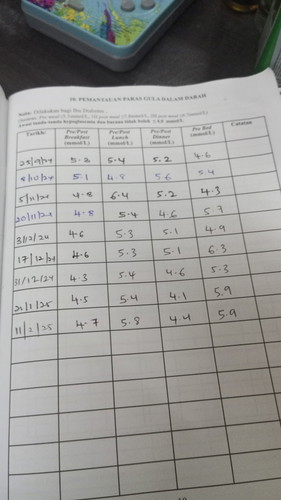 18. PEMANTAUAN PARAS GULA DALAM DARAH
Nota: Dilakukan bagi Ibu Diabetes
Tarikh: Pre/Post Breakfast (mmol/L) Pre/Post Lunch (mmol/L) Pre/Post Dinner (mmol/L) Pre Bed (mmol/L) Catatan
5.2 5.4 5.2 4.6
8/10/24 5.1 4.8 5.6 5.4
5/11/24 4.8 6.4 5.2 4.3
20/11/24 4.8 5.4 4.6 5.7
3/12/24 4.6 5.3 5.1 4.9
17/12/24 4.6 5.3 5.1 6.3
31/12/24 4.3 5.4 4.6 5.3
4.5 5.4 4.1 5.9
11/2/25 4.7 5.8 4.4 5.9